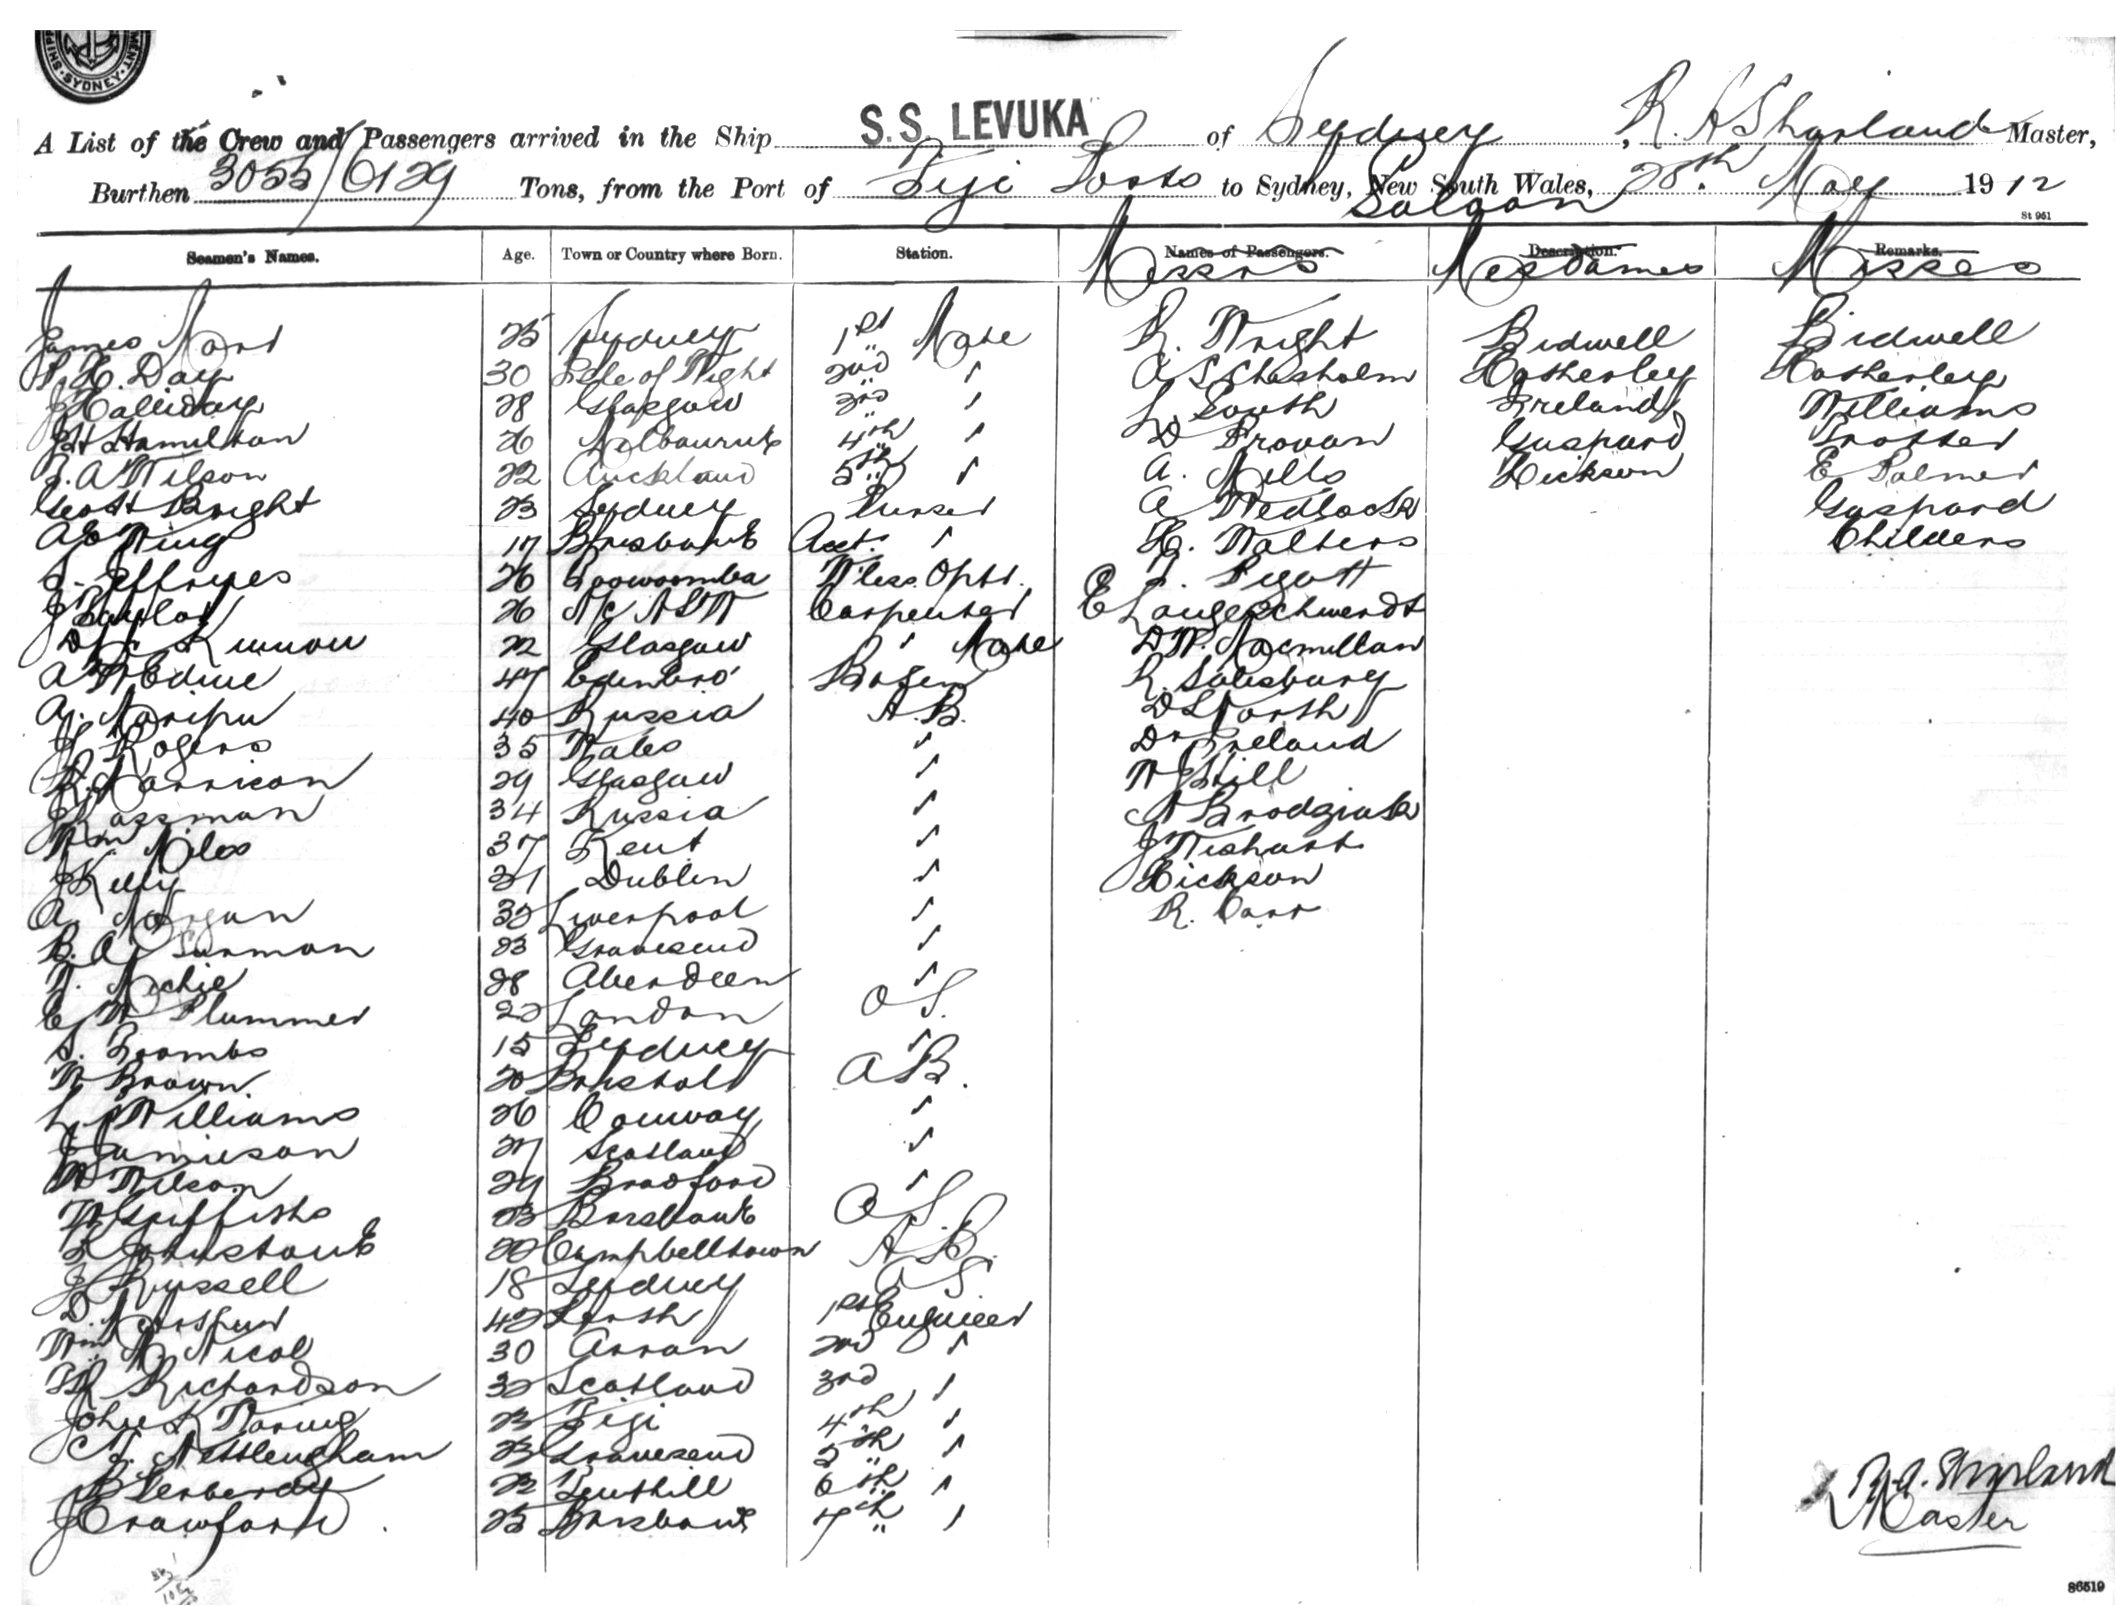 SYDNEY
A List of the Crew and Passengers arrived in the Ship S.S. LEVUKA of Sydney, R. A Sharland Master,
Burthen 3055/6129 Tons, from the Port of Fiji Ports to Sydney, New South Wales, 28th May 1912
St 951
Saloon
Seamen's Names. Age. Town or Country where Born. Station. Names of Passengers. Description. Remarks.
Messrs Mesdames Misses
James 25 Sydney 1st Mate R. Wright Bidwell Bidwell
H. Day 30 Isle of Wight 2nd " A S Chisholm Hatherley Hatherley
J Halliday 28 Glasgow 3rd " L South Ireland Williams
J H Hamilton 26 Melbourne 4th " D Provan Guspard Trotter
F. A Wilson 22 Auckland 5th " A. Mills Hickson E Palmer
Geo H Bright 23 Sydney Purser A Wedlock Guspard
A E King 17 Brisbane Asst. " H. Walters Childers
S. Jeffryes 26 Toowoomba W'less Optr. F. Pigott
J Taylor 26 N/c NSW Carpenter E Laugeschwerdt
D Mc Kinnon 22 Glasgow " Mate D W. Macmillan
A McEdine 47 Edinbro' Bosen R. Salisbury
A. 40 Russia A.B. D S Forsth
H Rogers 35 Wales " Dr Ireland
R. Harrison 29 Glasgow " W J Hill
J Kassman 34 Russia " N Brodziak
Wm Miles 37 Kent " J Wishart
J Kelly 31 Dublin " Hickson
A. Morgan 32 Liverpool " R. Carr
B. A. Surman 23 Gravesend "
W. Michie 28 Aberdeen "
E W Plummer 22 London O S.
S. Toombs 15 Sydney "
W Brown 20 Bristol A B.
L. Williams 26 Conway "
J Jamieson 27 Scotland "
W Wilson 29 Bradford "
W Griffiths 23 Brisbane O S
R Johnstone 22 Campbelltown A B.
J Russell 18 Sydney O S
D. 42 Perth 1st Engineer
Wm M. Nicol 30 Arran 2nd "
W R Richardson 32 Scotland 3rd "
John K Waring 23 Fiji 4th "
C T. Nettlengham 23 Gravesend 5th "
22 Penthill 6th "
J Crawford 25 Brisbane 7th "
R. A. Sharland
Master
86519